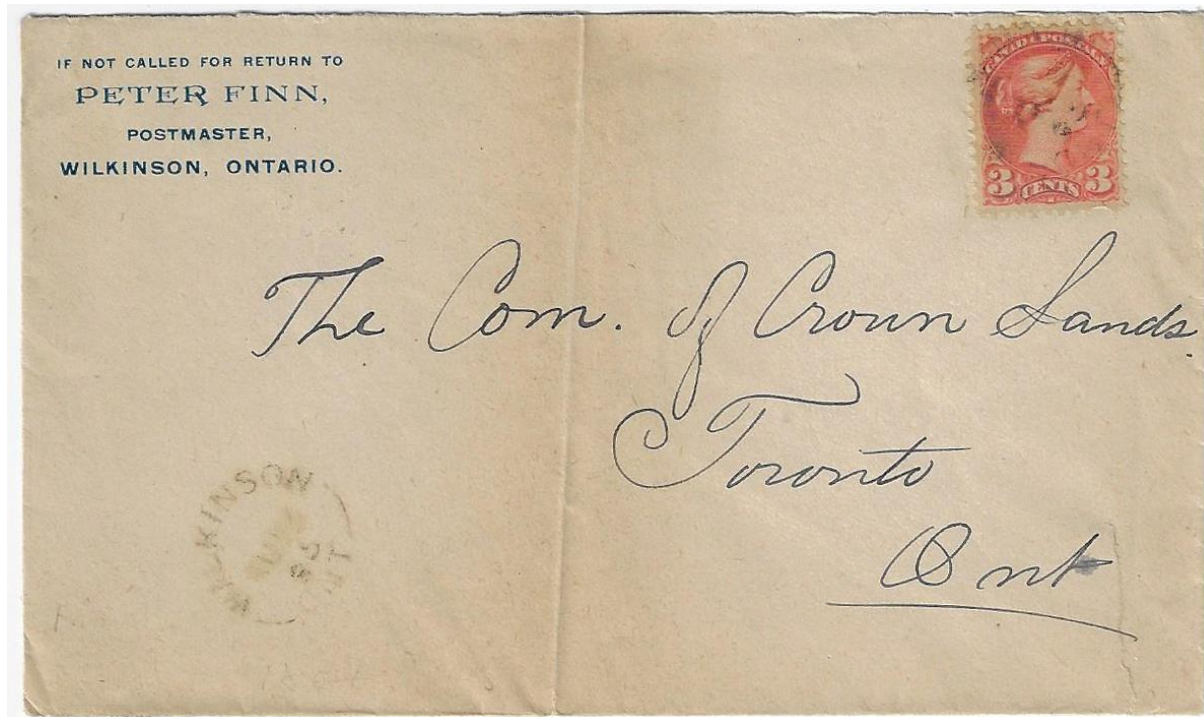 IF NOT CALLED FOR RETURN TO
PETER FINN,
POSTMASTER,
WILKINSON, ONTARIO.
CANADA POSTAGE
3 CENTS 3
The Com. of Crown Lands.
Toronto
Ont
WILKINSON
ONT